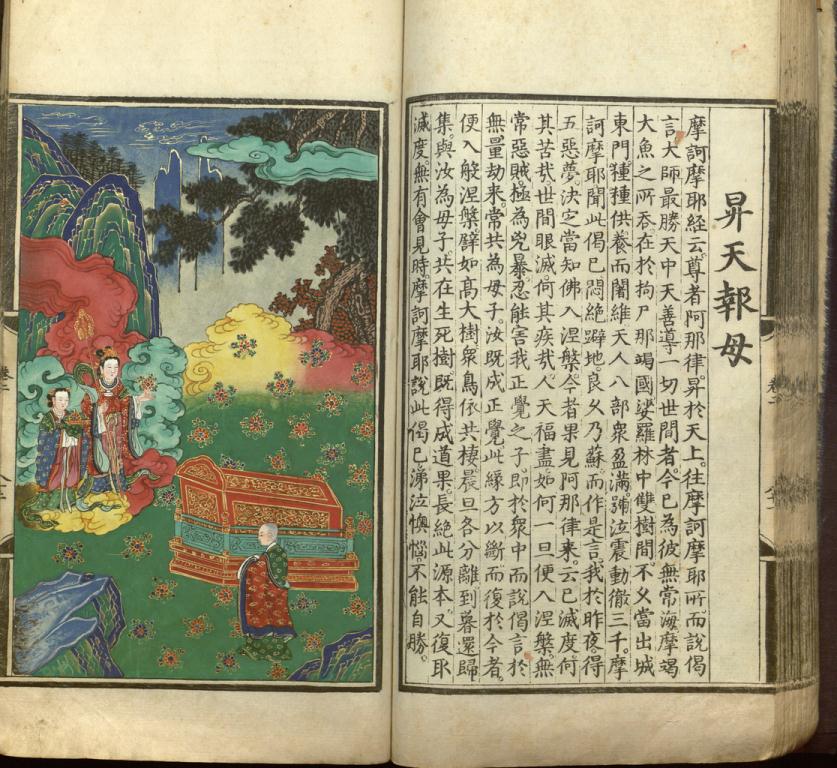 昇天報母
摩訶摩耶経云。尊者阿那律。昇於天上。往摩訶摩耶所。而說偈
言大師最勝天中天善導一切世間者。今已為彼無常海摩竭
大魚之所吞在於拘尸那竭國娑羅林中雙樹間。不久當出城
東門種種供養而闍維天人八部衆盈滿。號泣震動徹三千。摩
訶摩耶聞此偈已悶絕躃地。良久乃蘇。而作是言。我於昨夜。得
五惡夢。決定當知佛入涅槃。今者果見阿那律來。云已滅度何
其苦哉。世間眼滅。何其疾哉。人天福盡如何一旦便入涅槃。無
常惡賊。極為兇暴。忍能害我正覺之子。即於衆中而說偈言於
無量劫來。常共為母子汝既成正覺。此緣方以斷而復於今者。
便入般涅槃。譬如高大樹衆鳥依共棲晨旦各分離到暮還歸
集。與汝為母子。共在生死樹。既得成道果。長絕此源本。又復取
滅度。無有會見時。摩訶摩耶說此偈已。涕泣懊惱不能自勝。